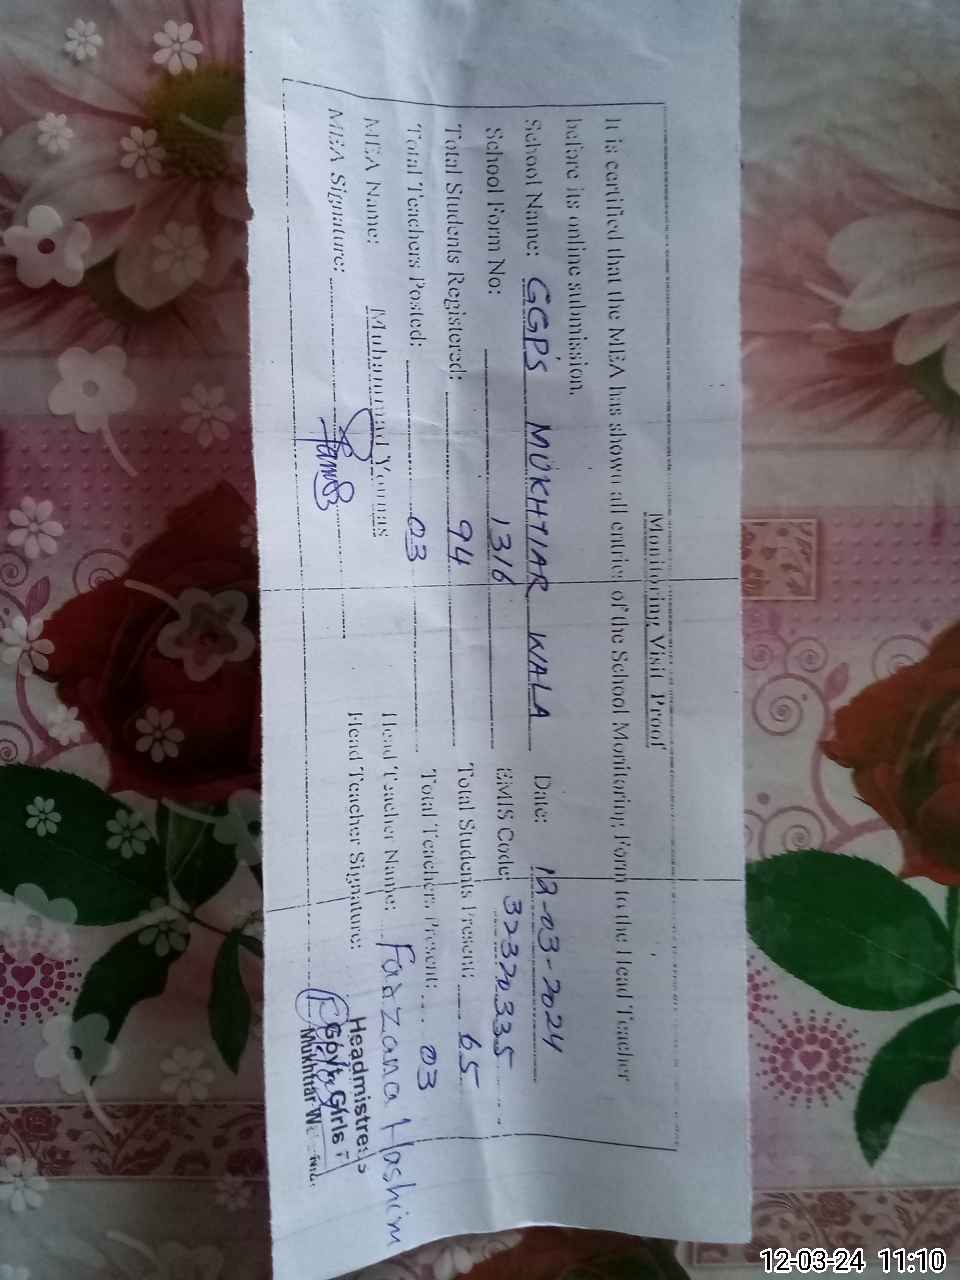 Monitoring Visit Proof
It is certified that the MEA has shown all entries of the School Monitoring Form to the Head Teacher
before its online submission.
School Name: GGPS MUKHTIAR WALA Date: 12-03-2024
School Form No: 1316 EMIS Code: 32320335
Total Students Registered: 94 Total Students Present: 65
Total Teachers Posted: 03 Total Teachers Present: 03
MEA Name: Muhammad Younas Head Teacher Name: Fouzana Hashim
MEA Signature: Head Teacher Signature:
Headmistress
Govt. Girls
Mukhtiar
12-03-24 11:10